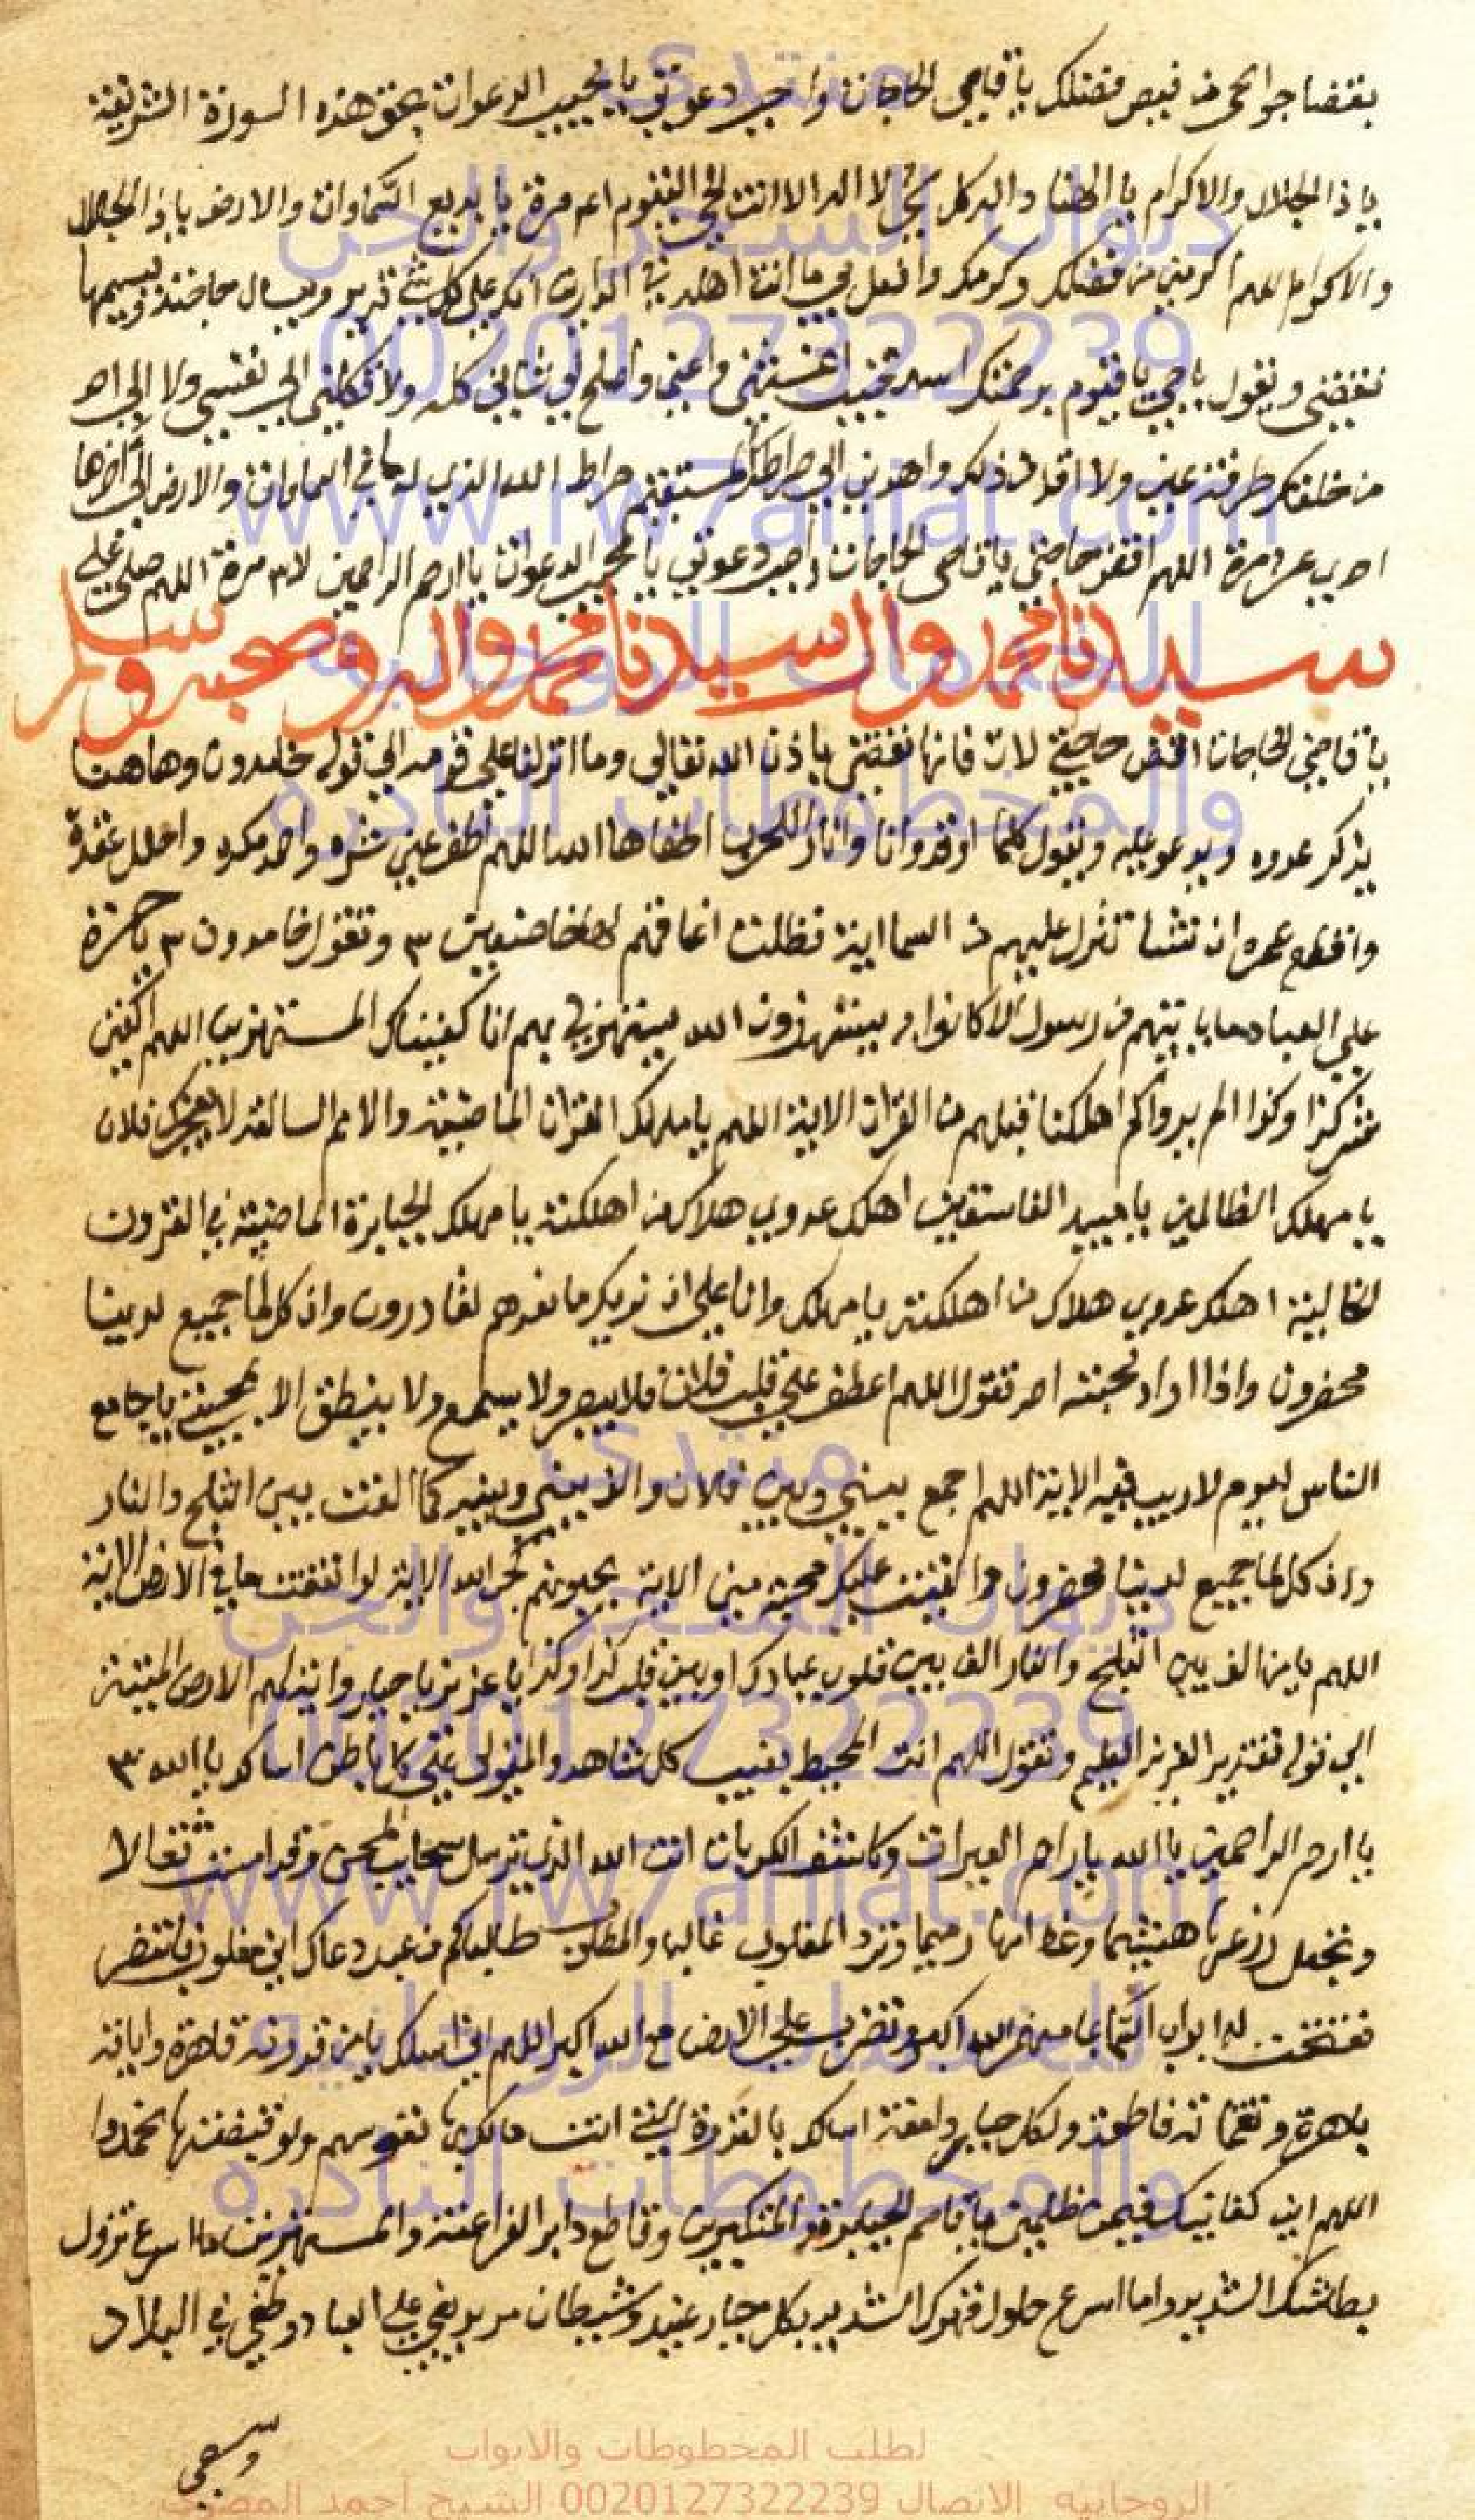 بقضا حوائجى من فيض فضلك يا قاضى الحاجات واجب دعوتى يا مجيب الدعوات بحق هذه السورة الشريفة
يا ذا الجلال والاكرام يا الهنا واله كل شى لا اله الا انت الحى القيوم مرة يا بديع السماوات والارض يا ذا الجلال
والاكرام اللهم اكرمنى من فضلك وكرمك وافعل بى ما انت اهله فى الدارين انك على كل شى قدير ويسال حاجته ويسميها
تقضى ويقول يا حى يا قيوم برحمتك استغيث اغثنى واعنى واصلح لى شانى كله ولا تكلنى الى نفسى ولا الى احد
من خلقك طرفة عين ولا اقل من ذلك واهدنى الى صراطك المستقيم صراط الله الذى له ما فى السماوات والارض الى اخرها
احدى عشر مرة اللهم اقض حاجتى يا قاضى الحاجات واجب دعوتى يا مجيب الدعوات يا ارحم الراحمين مرة اللهم صلى على
سيدنا محمد وال سيدنا محمد واله وصحبه وسلم
يا قاضى الحاجات اقض حاجتى فانها تقضى باذن الله تعالى وما انزلنا على قومه الى قوله خامدون وهاهنا
يذكر عدوه ويدعو عليه ويقول كلما اوقدوا نارا للحرب اطفاها الله اللهم اطف عين شره واخمد مكره واحلل عقدة
واقطع عمره ان نشا ننزل عليهم من السما اية فظلت اعناقهم لها خاضعين ٣ وتقول خامدون ٣ يا حسرة
على العباد ما ياتيهم من رسول الا كانوا به يستهزؤن الله يستهزى بهم انا كفيناك المستهزين اللهم اكفنى
شر كذا وكذا الم يروا كم اهلكنا قبلهم من القرون الاية اللهم يا مهلك القرون الماضية والامم السالفة لا يعجزك فلان
يا مهلك الظالمين يا مبيد الفاسقين اهلك عدوى هلاك من اهلكته يا مهلك الجبابرة الماضية فى القرون
الخالية اهلك عدوى هلاك من اهلكته يا مهلك وانا على ان نريك ما نعدهم لقادرون وان كل لما جميع لدينا
محضرون واذا اراد محبته تقول اللهم اعطف على قلب فلان فلا يبصر ولا يسمع ولا ينطق الا بمحبتى يا جامع
الناس ليوم لا ريب فيه الاية اللهم اجمع بينى وبين فلان والف بينى وبينه كما الفت بين الثلج والنار
وان كل لما جميع لدينا محضرون والقيت عليك محبة منى الاية يحبونهم كحب الله الاية لو انفقت ما فى الارض الاية
اللهم يا من الف بين الثلج والنار الف بين قلوب عبادك وبين قلب كذا وكذا يا عزيز يا جبار واية لهم الارض الميتة
الى قوله تقدير العزيز العليم وتقول اللهم انت المحيط بغيب كل شاهد والمتولى على كل باطن اسالك يا الله ٣
يا ارحم الراحمين يا الله يا راحم العبرات وكاشف الكربات انت الله الذى
وتجعل هشيما وعظامها رميما وترد المغلوب غالبا والمطلوب طالبا كم من عبد دعاك انى مغلوب فانتصر
ففتحت له ابواب السما بما منهمر الله اكبر وتضرب على الارض مع الله اكبر اللهم انى اسالك يا من قدرته قاهرة واياته
باهرة ونقماته قاطعة ولكل جبار اسالك بالقدرة التى انت مالك بها نفوسهم ولو قبضتها لخمدوا
اللهم كفايتك فيمن ظلمنى يا قاصم الجبابرة والمتكبرين وقاطع دابر الفراعنة والمستهزين ما اسرع نزول
بطشك الشديد وما اسرع حلول قهرك الشديد بكل جبار عنيد وشيطان مريد بغى على العباد وطغى فى البلاد
وسعى
منتدى
ديوان السحر والجن
0020127322239
www.rw7aniat.com
للخدمات الروحانيه
والمخطوطات النادره
منتدى
ديوان السحر والجن
0020127322239
www.rw7aniat.com
للخدمات الروحانيه
والمخطوطات النادره
لطلب المخطوطات والابواب
الروحانيه الاتصال 0020127322239 الشيخ احمد المصرى